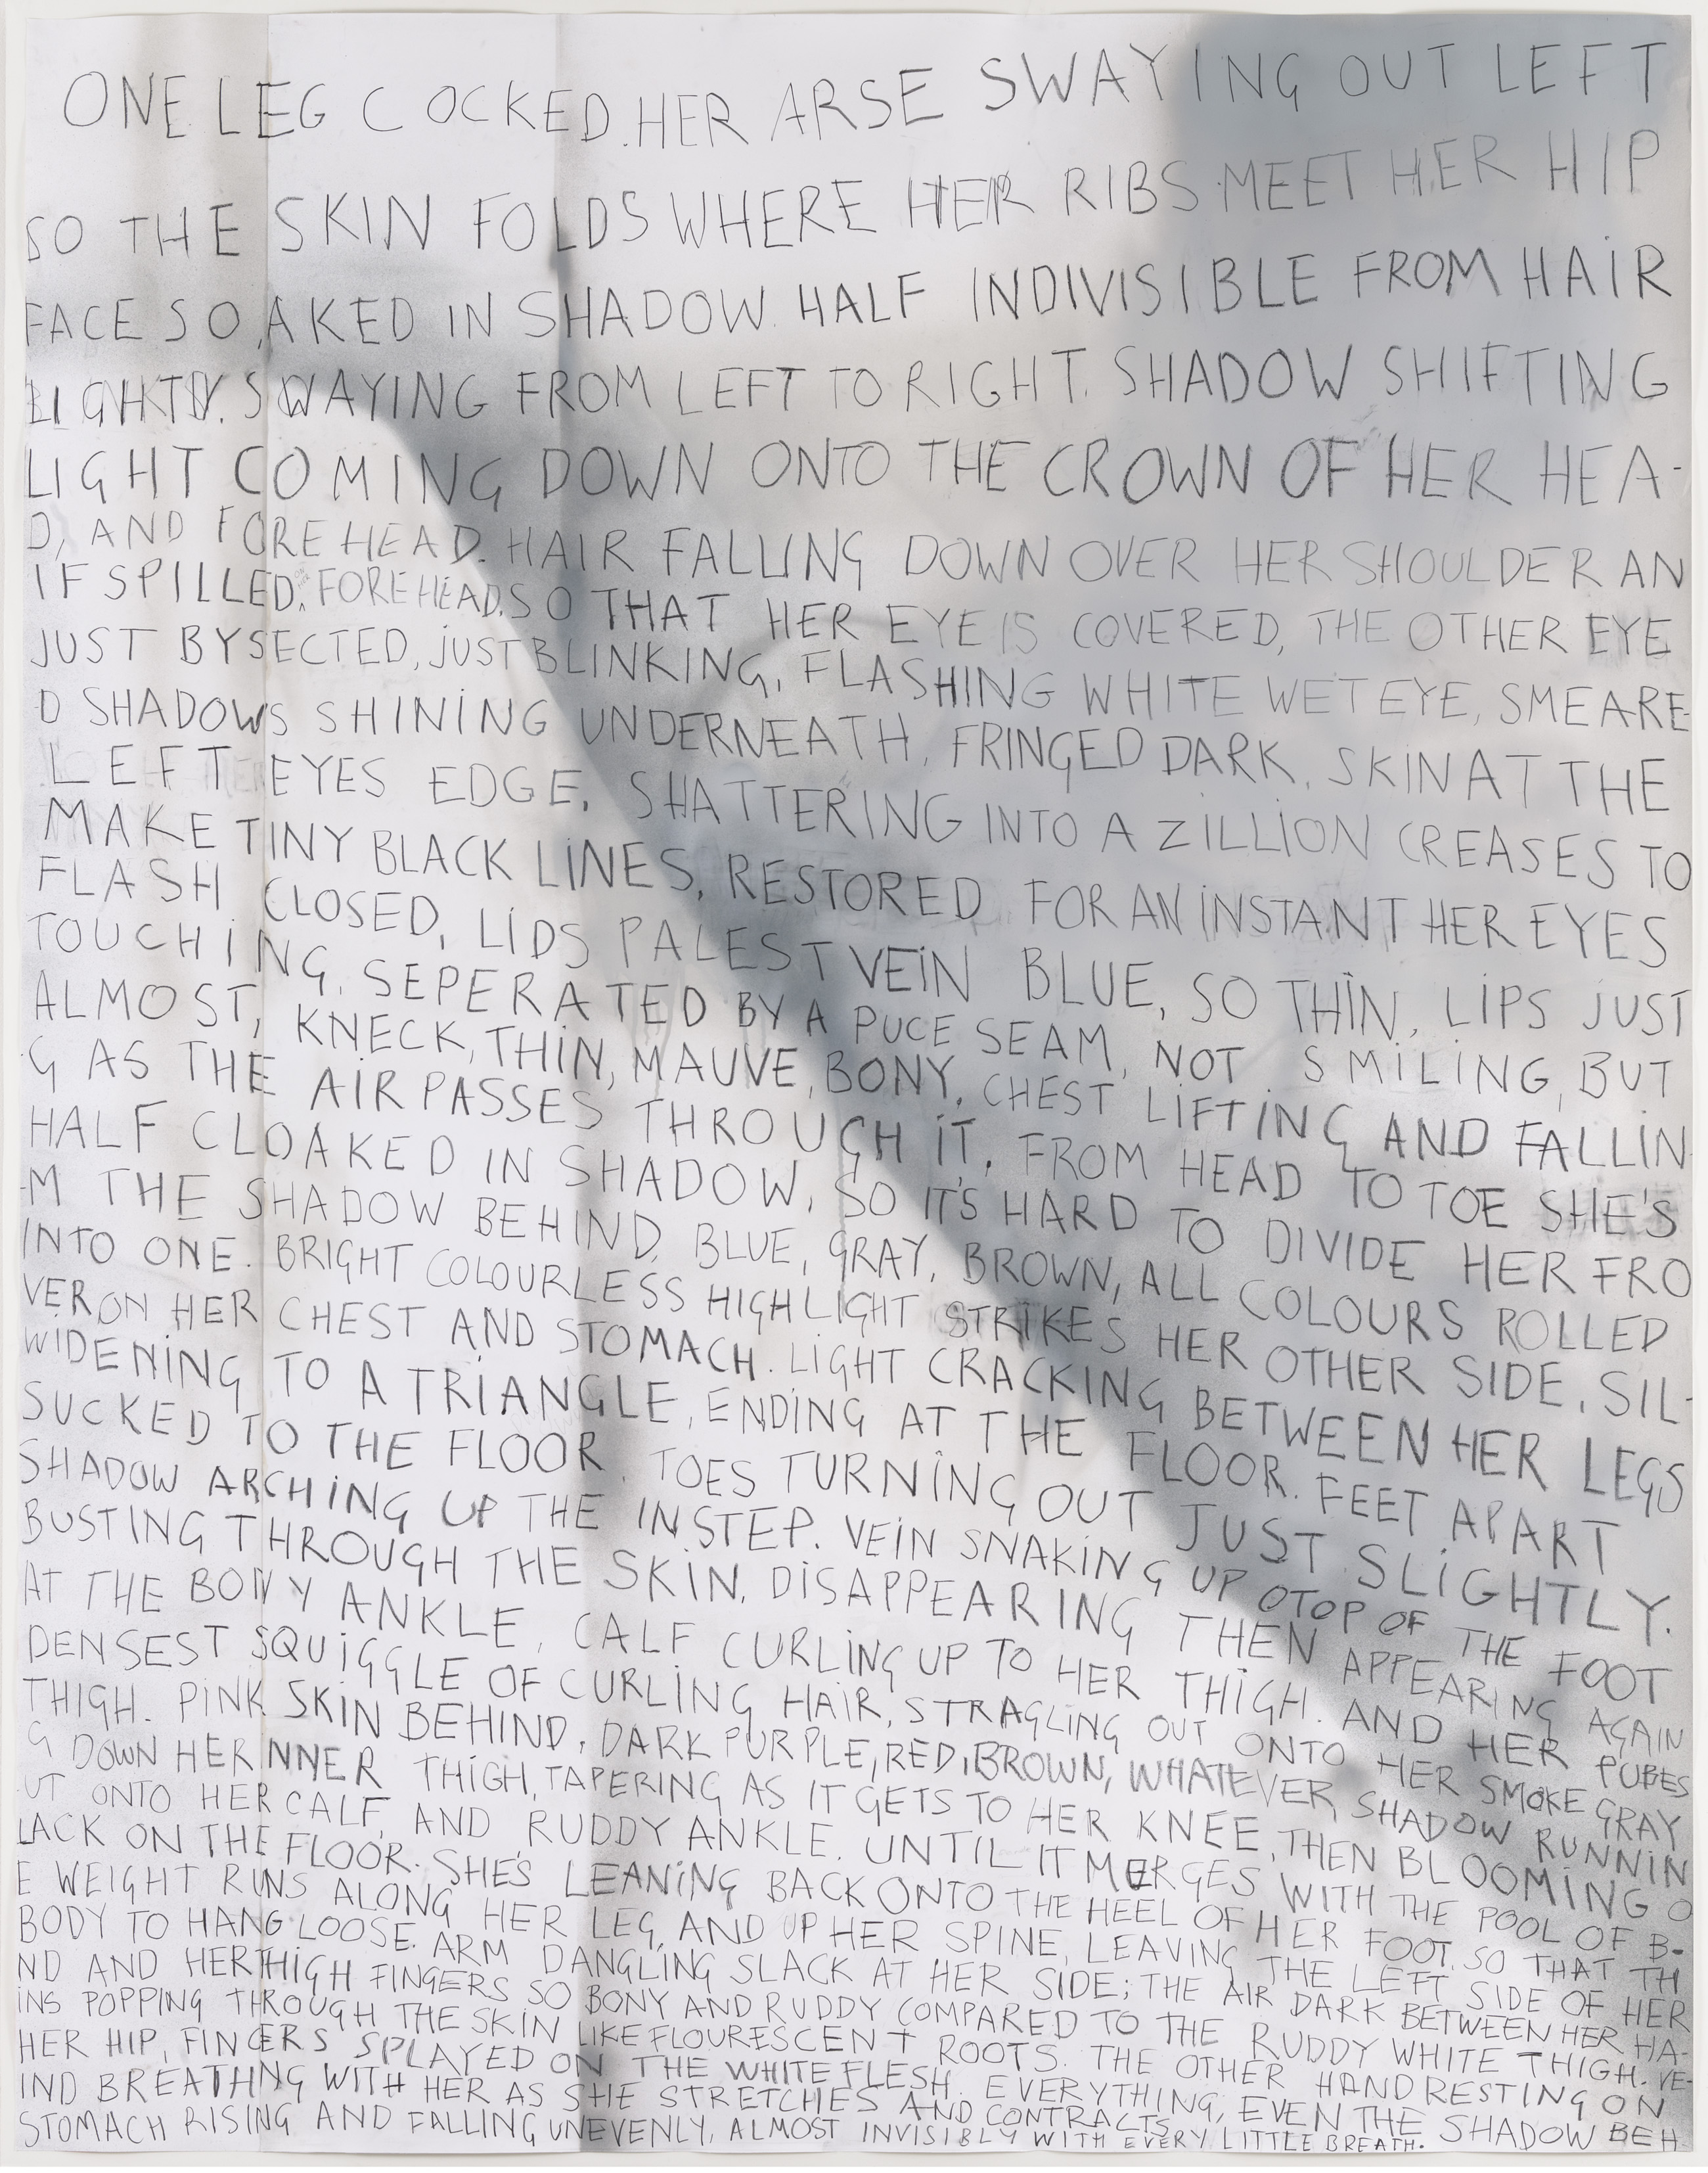 ONE LEG COCKED. HER ARSE SWAYING OUT LEFT
SO THE SKIN FOLDS WHERE HER RIBS MEET HER HIP
FACE SOAKED IN SHADOW HALF INDIVISIBLE FROM HAIR
SWAYING FROM LEFT TO RIGHT. SHADOW SHIFTING
LIGHT COMING DOWN ONTO THE CROWN OF HER HEA-
D, AND FOREHEAD. HAIR FALLING DOWN OVER HER SHOULDER AN
IF SPILLED, FOREHEAD, SO THAT HER EYE IS COVERED, THE OTHER EYE
JUST BYSECTED, JUST BLINKING, FLASHING WHITE WET EYE, SMEARE
D SHADOWS SHINING UNDERNEATH, FRINGED DARK. SKIN AT THE
LEFT EYES EDGE, SHATTERING INTO A ZILLION CREASES TO
MAKE TINY BLACK LINES, RESTORED FOR AN INSTANT HER EYES
FLASH CLOSED, LIDS PALEST VEIN BLUE, SO THIN, LIPS JUST
TOUCHING. SEPERATED BY A PUCE SEAM, NOT SMILING, BUT
ALMOST, KNECK, THIN, MAUVE, BONY, CHEST LIFTING AND FALLIN
G AS THE AIR PASSES THROUGH IT. FROM HEAD TO TOE SHE'S
HALF CLOAKED IN SHADOW, SO IT'S HARD TO DIVIDE HER FRO
-M THE SHADOW BEHIND, BLUE, GRAY, BROWN, ALL COLOURS ROLLED
INTO ONE. BRIGHT COLOURLESS HIGHLIGHT STRIKES HER OTHER SIDE, SIL-
VER ON HER CHEST AND STOMACH. LIGHT CRACKING BETWEEN HER LEGS
WIDENING TO A TRIANGLE, ENDING AT THE FLOOR. FEET APART
SUCKED TO THE FLOOR. TOES TURNING OUT JUST SLIGHTLY.
SHADOW ARCHING UP THE INSTEP. VEIN SNAKING UP OTOP OF THE FOOT
BUSTING THROUGH THE SKIN, DISAPPEARING THEN APPEARING AGAIN
AT THE BONY ANKLE, CALF CURLING UP TO HER THIGH. AND HER PUBES
DENSEST SQUIGGLE OF CURLING HAIR, STRAGLING OUT ONTO HER SMOKE GRAY
THIGH. PINK SKIN BEHIND, DARK PURPLE, RED, BROWN, WHATEVER, SHADOW RUNNIN
G DOWN HER INNER THIGH, TAPERING AS IT GETS TO HER KNEE, THEN BLOOMING O
UT ONTO HER CALF, AND RUDDY ANKLE. UNTIL IT MERGES WITH THE POOL OF B-
LACK ON THE FLOOR. SHE'S LEANING BACK ONTO THE HEEL OF HER FOOT, SO THAT TH
E WEIGHT RUNS ALONG HER LEG, AND UP HER SPINE, LEAVING THE LEFT SIDE OF HER
BODY TO HANG LOOSE. ARM DANGLING SLACK AT HER SIDE; THE AIR DARK BETWEEN HER HA-
ND AND HER THIGH FINGERS SO BONY AND RUDDY COMPARED TO THE RUDDY WHITE THIGH. VE-
INS POPPING THROUGH THE SKIN LIKE FLOURESCENT ROOTS. THE OTHER HAND RESTING ON
HER HIP, FINGERS SPLAYED ON THE WHITE FLESH. EVERYTHING, EVEN THE SHADOW BEH
IND BREATHING WITH HER AS SHE STRETCHES AND CONTRACTS,
STOMACH RISING AND FALLING UNEVENLY, ALMOST INVISIBLY WITH EVERY LITTLE BREATH.